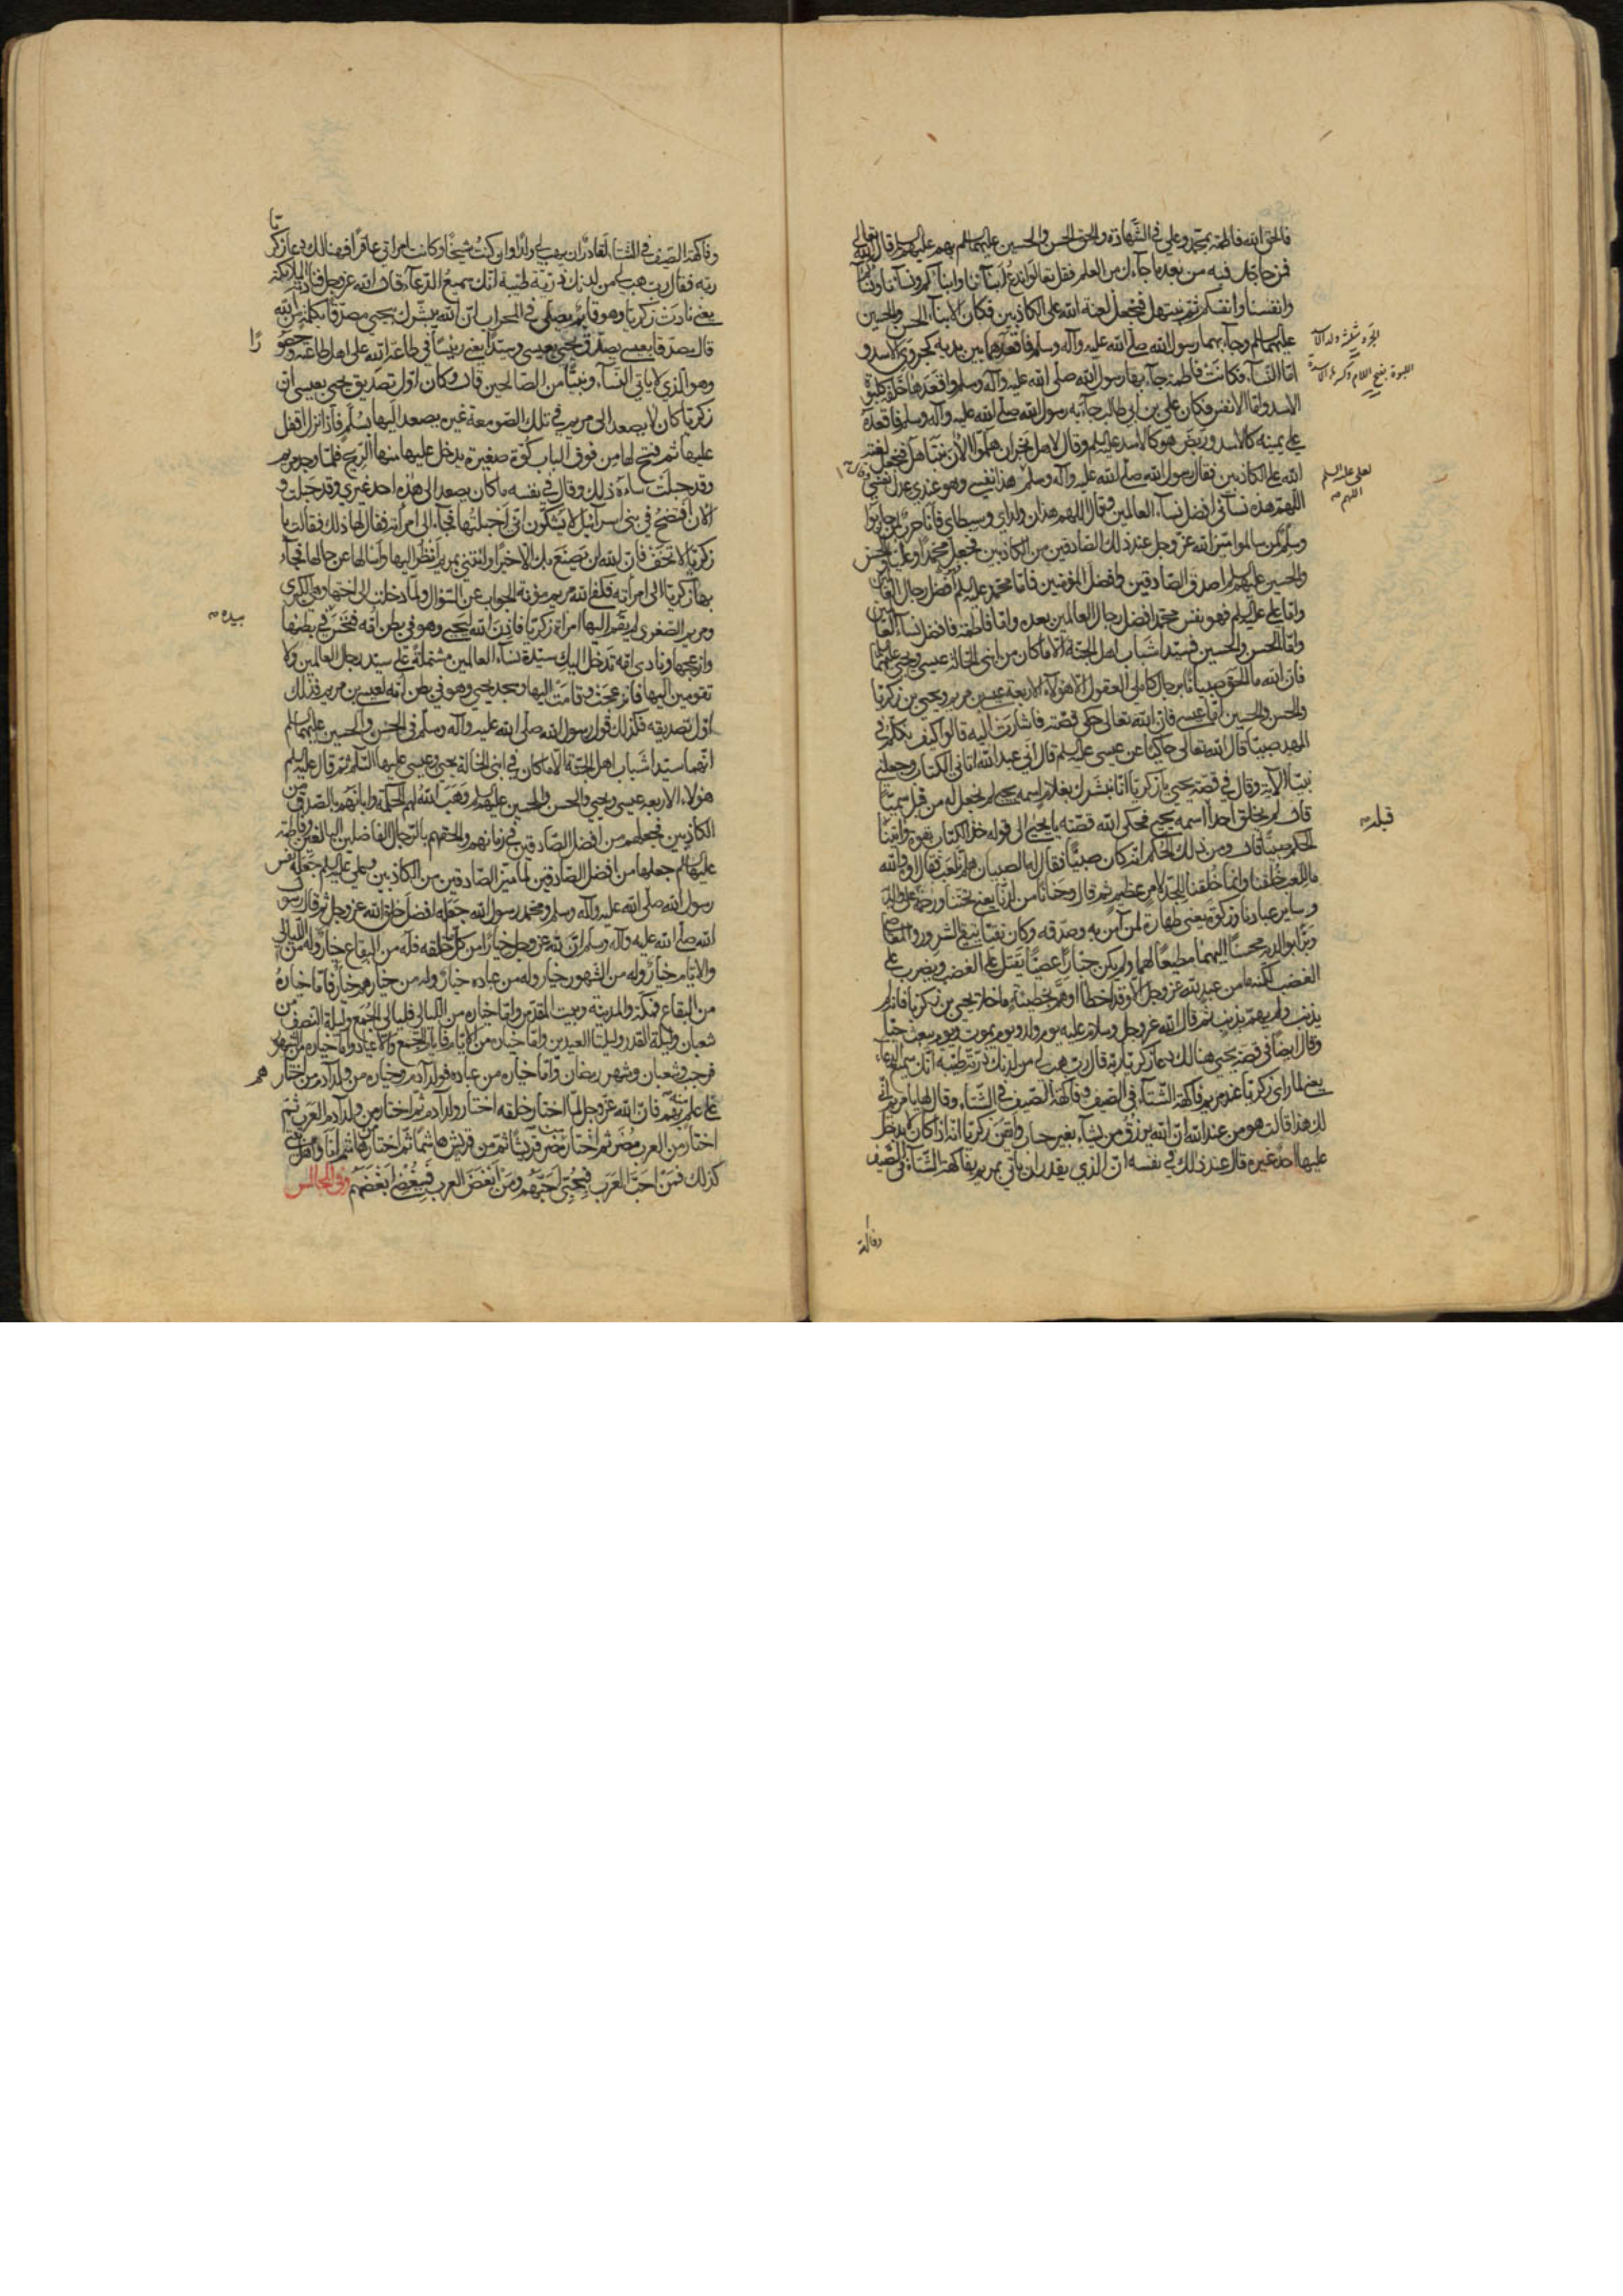 فالحق الله فاطمة بمحمد وعلي في الشهادة والحق الحسن والحسين عليهما السلم بهم عليهم السلم قال الله تعالى
فمن حاجك فيه من بعد ما جاءك من العلم فقل تعالوا ندع ابناءنا وابناءكم ونساءنا ونساءكم
وانفسنا وانفسكم ثم نبتهل فنجعل لعنة الله على الكاذبين فكان الابناء الحسن والحسين
عليهما السلم وجاء بهما رسول الله صلى الله عليه وآله وسلم فاقعدهما بين يديه كجروي الاسد و
اما النساء فكانت فاطمة جاء بها رسول الله صلى الله عليه وآله وسلم واقعدها خلفه كلبوة
الاسد واما الانفس فكان علي بن ابي طالب جاء به رسول الله صلى الله عليه وآله وسلم فاقعده
عن يمينه كالاسد وربض هو كالاسد عليه السلم وقال لاهل نجران هلموا الآن نبتهل فنجعل لعنة
الله على الكاذبين فقال رسول الله صلى الله عليه وآله وسلم هذا نفسي وهو عندي عدل نفسي
اللهم هذه نسائي افضل نساء العالمين وقال اللهم هذان ولداي وسبطاي فانا حرب لمن حاربوا
وسلم لمن سالموا ميز الله عز وجل عند ذلك الصادقين من الكاذبين فجعل محمدا وعليا وفاطمة والحسن
والحسين عليهم السلم اصدق الصادقين وافضل المؤمنين فاما محمد عليه السلم افضل رجال العالمين
واما علي عليه السلم فهو نفس محمد افضل رجال العالمين بعده واما فاطمة فافضل نساء العالمين
واما الحسن والحسين فسيدا شباب اهل الجنة الا ما كان من ابني الخالة عيسى ويحيى عليهما السلم
فان الله ما الحق صبيانا برجال كاملي العقول الا هؤلاء الاربعة عيسى بن مريم ويحيى بن زكريا
والحسن والحسين اما عيسى فان الله تعالى حكى قصته فاشارت اليه قالوا كيف نكلم من كان في
المهد صبيا قال الله تعالى حاكيا عن عيسى عليه السلم قال اني عبد الله اتاني الكتاب وجعلني
نبيا الآية وقال في قصة يحيى يا زكريا انا نبشرك بغلام اسمه يحيى لم نجعل له من قبل سميا
قال لم يخلق احدا اسمه يحيى فحكى الله قصته يا يحيى الى قوله خذ الكتاب بقوة واتيناه
الحكم صبيا قال ومن ذلك الحكم انه كان صبيا فقال له الصبيان هلم نلعب فقال اوه والله
ما للعب خلقنا وانما خلقنا للجد لامر عظيم ثم قال وحنانا من لدنا يعني تحننا ورحمة على والديه
وساير عبادنا وزكوة يعني طهارة لمن آمن به وصدقه وكان تقيا يتقي الشرور والمعاصي
وبرا بوالديه محسنا اليهما مطيعا لهما ولم يكن جبارا عصيا يقتل على الغضب ويضرب على
الغضب لكنه ما من عبد لله عز وجل الا وقد اخطأ او هم بخطيئة ما خلا يحيى بن زكريا فانه لم
يذنب ولم يهم بذنب ثم قال الله عز وجل وسلام عليه يوم ولد ويوم يموت ويوم يبعث حيا
وقال ايضا في قصة يحيى هنالك دعا زكريا ربه قال رب هب لي من لدنك ذرية طيبة انك سميع الدعاء
يعني لما رأى زكريا عند مريم فاكهة الشتاء في الصيف وفاكهة الصيف في الشتاء وقال لها يا مريم انى
لك هذا قالت هو من عند الله ان الله يرزق من يشاء بغير حساب وايقن زكريا انه اذا كان لا يدخل
عليها احد غيره قال عند ذلك في نفسه ان الذي يقدر ان يأتي مريم بفاكهة الشتاء في الصيف
الجرو مثلثة ولد الاسد
اللبوة بفتح اللام
اللهم
قبله
وفاكهة
وفاكهة الصيف في الشتاء لقادر ان يهب لي ولدا وان كنت شيخا وكانت امرأتي عاقرا فهنالك دعا زكريا
ربه فقال رب هب لي من لدنك ذرية طيبة انك سميع الدعاء قال الله عز وجل فنادته الملائكة
يعني نادت زكريا وهو قائم يصلي في المحراب ان الله يبشرك بيحيى مصدقا بكلمة من الله
قال مصدقا بعيسى يصدق يحيى بعيسى وسيدا يعني رئيسا في طاعة الله على اهل طاعته وحصورا
وهو الذي لا يأتي النساء ونبيا من الصالحين قال وكان اول تصديق يحيى بعيسى ان
زكريا كان لا يصعد الى مريم في تلك الصومعة غيره يصعد اليها بسلم فاذا نزل اقفل
عليها ثم فتح لها من فوق الباب كوة صغيرة يدخل عليها منها الريح فلما وجد مريم
وقد حبلت ساءه ذلك وقال في نفسه ما كان يصعد الى هذه احد غيري وقد حبلت و
الآن افتضح في بني اسرائيل لا يشكون اني احبلتها فجاء الى امرأته فقال لها ذلك فقالت يا
زكريا لا تخف فان الله لن يصنع بك الا خيرا وائتني بمريم انظر اليها واسألها عن حالها فجاء
بها زكريا الى امرأته فكفى الله مريم مؤنة الجواب عن السؤال ولما دخلت الى اختها وهي الكبرى
ومريم الصغرى لم تقم اليها امرأة زكريا فاذن الله ليحيى وهو في بطن امه فنخس في بطنها
وازعجها ونادى امه تدخل اليك سيدة نساء العالمين مشتملة على سيد رجال العالمين ولا
تقومين اليها فانزعجت وقامت اليها وسجد يحيى وهو في بطن امه لعيسى بن مريم فذلك
اول تصديقه فكذلك قول رسول الله صلى الله عليه وآله وسلم في الحسن والحسين عليهما السلم
انهما سيدا شباب اهل الجنة الا ما كان في ابني الخالة يحيى وعيسى عليهما السلم ثم قال عليه السلم
هؤلاء الاربعة عيسى ويحيى والحسن والحسين عليهم السلم وهب الله لهم الحكمة وابانهم بالصدق من
الكاذبين فجعلهم من افضل الصادقين في زمانهم والحقهم بالرجال الفاضلين البالغين وفاطمة
عليها السلم جعلها من افضل الصادقين لما ميز الصادقين من الكاذبين وعلي عليه السلم جعله نفس
رسول الله صلى الله عليه وآله وسلم ومحمد رسول الله جعله افضل خلق الله عز وجل ثم قال رسول
الله صلى الله عليه وآله وسلم ان لله عز وجل خيارا من كل خلقه فله من البقاع خيار وله من الليالي
والايام خيار وله من الشهور خيار وله من عباده خيار وله من خيارهم خيار فاما خياره
من البقاع فمكة والمدينة وبيت المقدس واما خياره من الليالي فليالي الجمع وليلة النصف من
شعبان وليلة القدر وليلتا العيدين واما خياره من الايام فايام الجمع والاعياد واما خياره من الشهور
فرجب وشعبان وشهر رمضان واما خياره من عباده فولد آدم وخياره من ولد آدم من اختارهم
على علم بهم فان الله عز وجل لما اختار خلقه اختار ولد آدم ثم اختار من ولد آدم العرب ثم
اختار من العرب مضر ثم اختار من مضر قريشا ثم من قريش هاشما ثم اختار من هاشم انا واهل بيتي
كذلك فمن احب العرب فبحبي احبهم ومن ابغض العرب فببغضي ابغضهم وفي المجالس
بيده